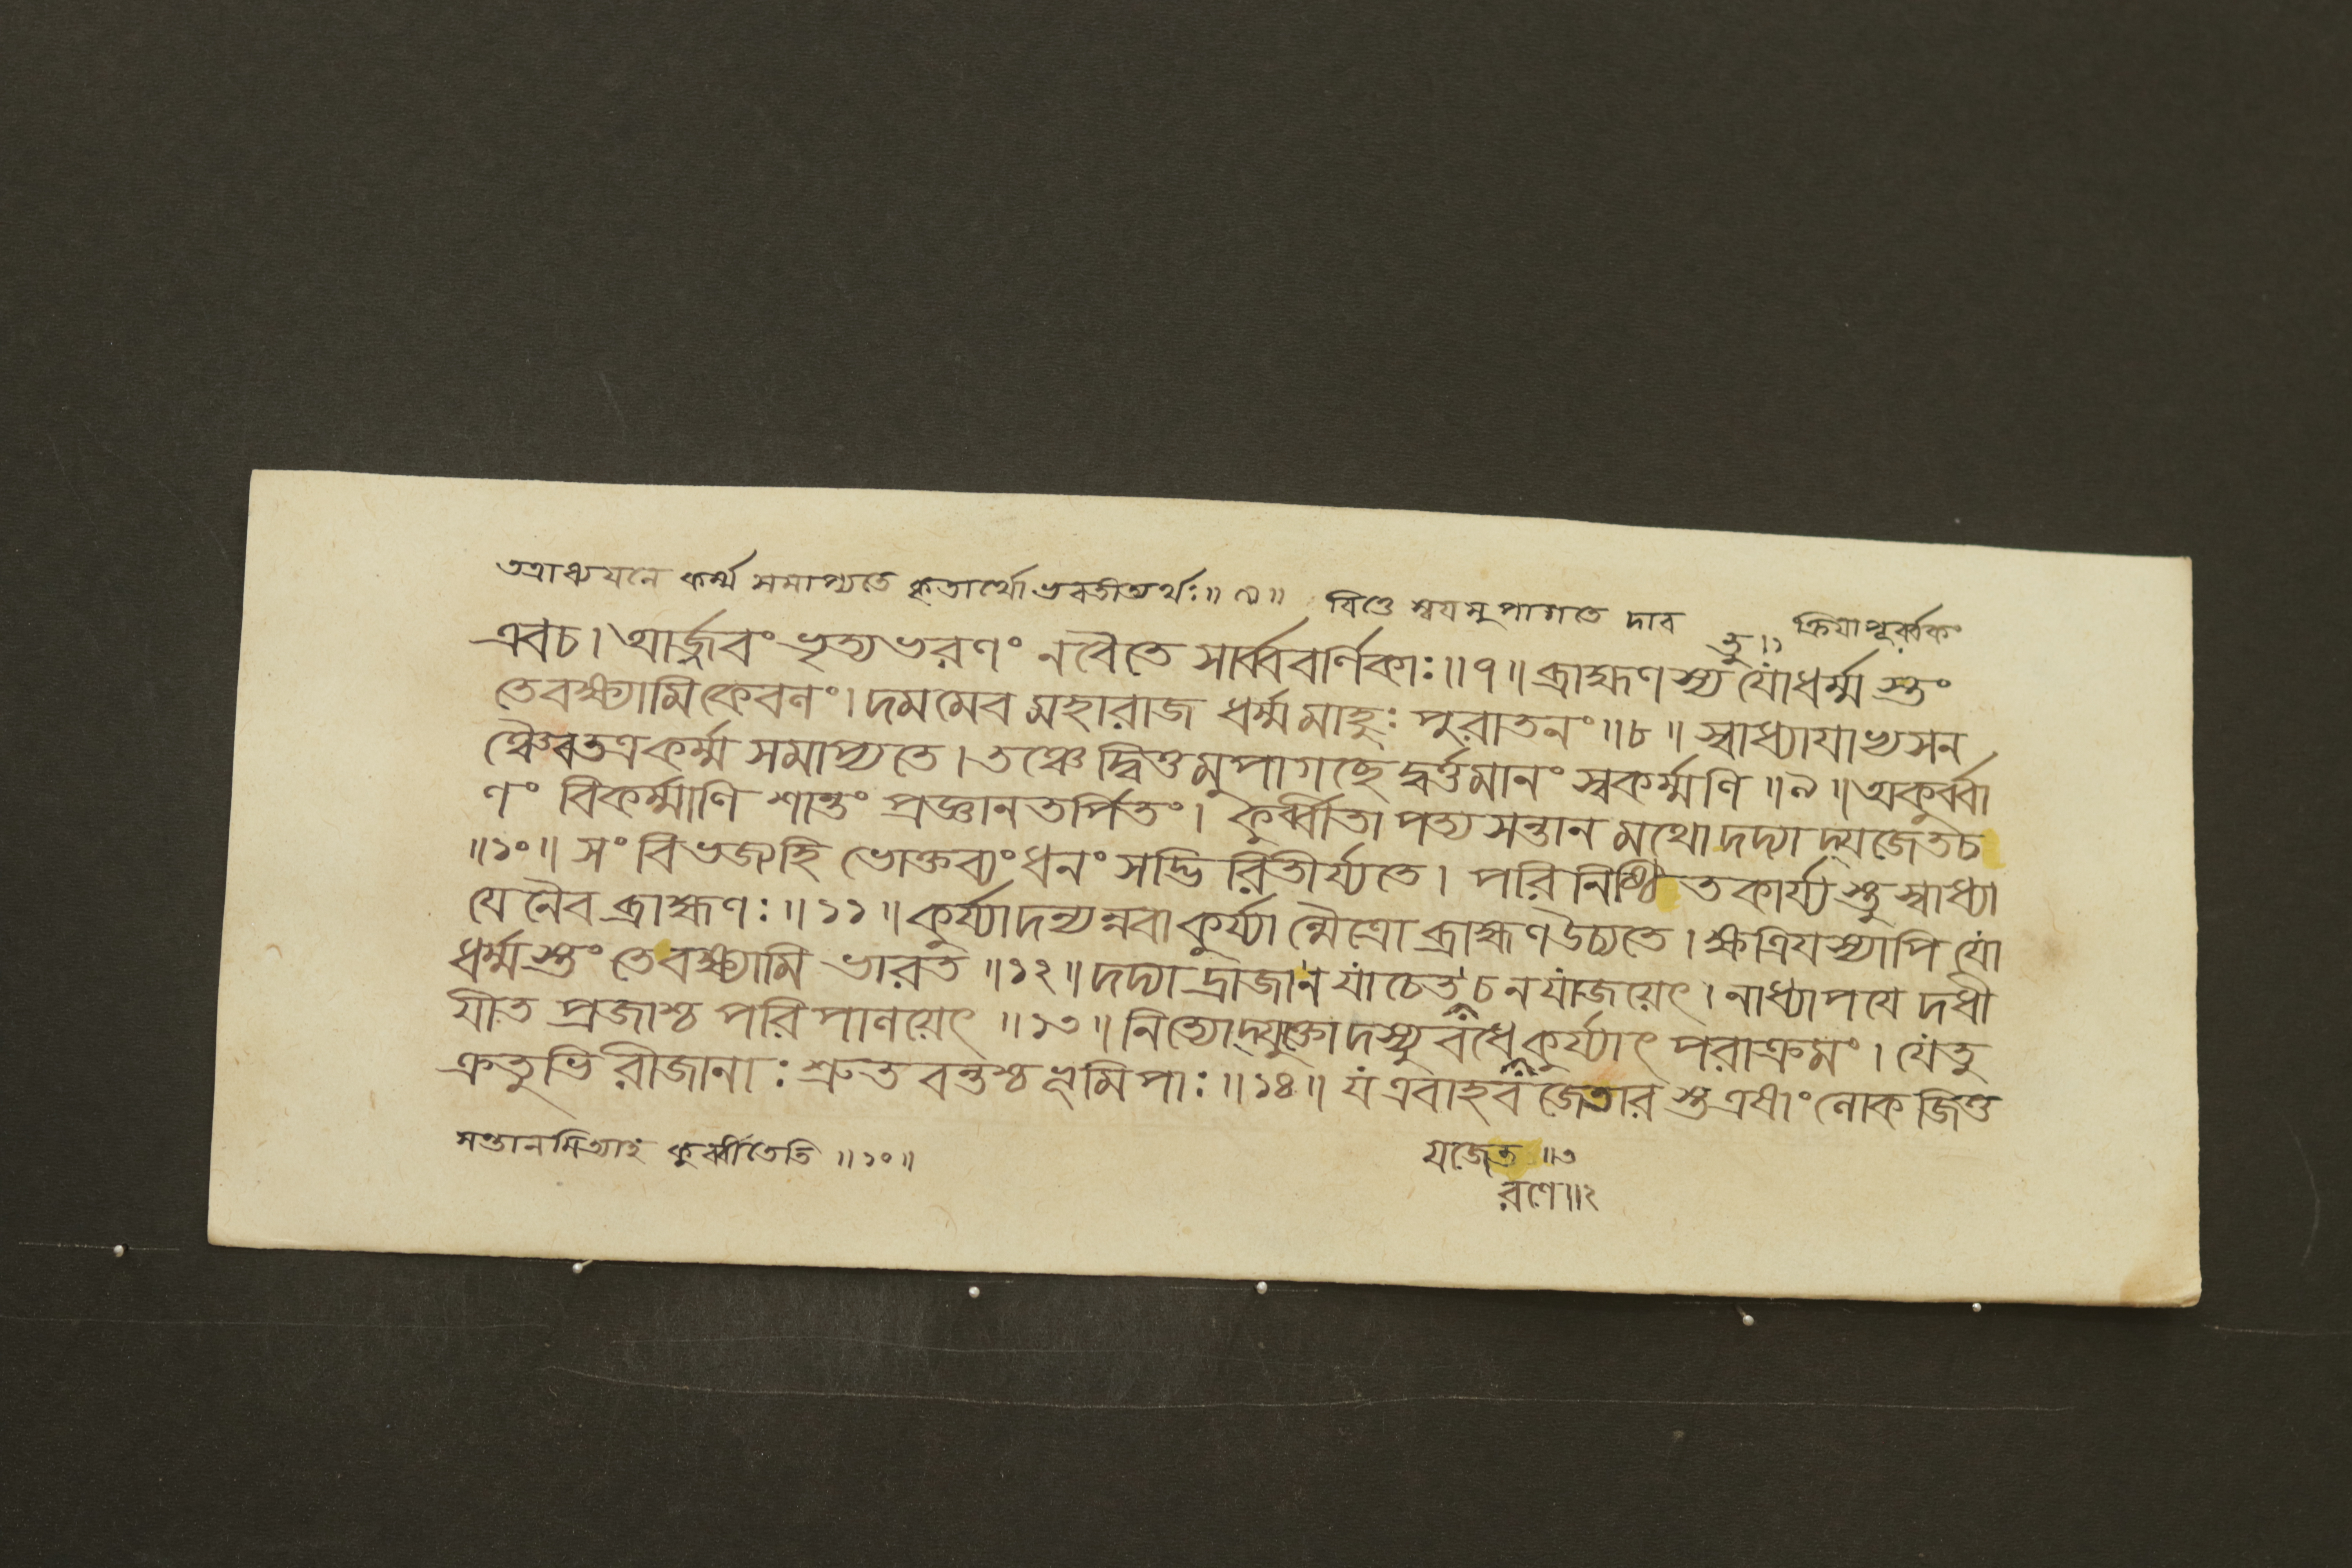 তত্রাধ্যয়নে কর্ম্ম সমাপ্যতে কৃতার্থো ভবতীত্যর্থঃ॥৯॥ বিত্তে স্বয়মুপাগতে দার ক্রিয়াপূর্ব্বকং
তু॥১
এবচ। আর্জ্জবং ভৃত্যভরণং নবৈতে সার্ব্ববর্ণিকাঃ॥৭॥ ব্রাহ্মণস্য যোধর্ম্মস্তং
তেবক্ষ্যামিকেবলং। দমমেব মহারাজ ধর্ম্মমাহুঃ পুরাতনং॥৮॥ স্বাধ্যায়াভ্যসন
ঞ্চৈবতত্রকর্ম্ম সমাপ্যতে। তঞ্চেদ্বিত্তমুপাগচ্ছেদ্বর্ত্তমানং স্বকর্ম্মণি॥৯॥ অকুর্ব্বা
ণং বিকর্ম্মাণি শান্তং প্রজ্ঞানতর্পিতং। কুর্ব্বীতাপত্যসন্তানমথোদদ্যাদ্যজেতচ
॥১০॥ সংবিভজ্যহি ভোক্তব্যংধনং সদ্ভিরিতীর্য্যতে। পরিনিষ্ঠিতকার্য্যস্তুস্বাধ্যা
য়েনৈবব্রাহ্মণঃ॥১১॥ কুর্য্যাদন্যন্নবাকুর্য্যান্মৈত্রোব্রাহ্মণউচ্যতে। ক্ষত্রিয়স্যাপি যো
ধর্ম্মস্তংতেবক্ষ্যামি ভারত॥১২॥ দদ্যাদ্রাজানযাচেতচনযাজয়েৎ। নাধ্যাপয়েদধী
য়ীত প্রজাশ্চ পরিপালয়েৎ॥১৩॥ নিত্যোদ্যুক্তোদস্যুবধেকুর্য্যাৎ পরাক্রমং। যেতু
ক্রতুভিরীজানাঃ শ্রুতবন্তশ্চভূমিপাঃ॥১৪॥ যএবাহবজেতারস্তএষাংলোকজিত্ত
সন্তানমিত্যাহ কুর্ব্বীতেতি॥১০॥
যজেত॥৩
রণে॥২